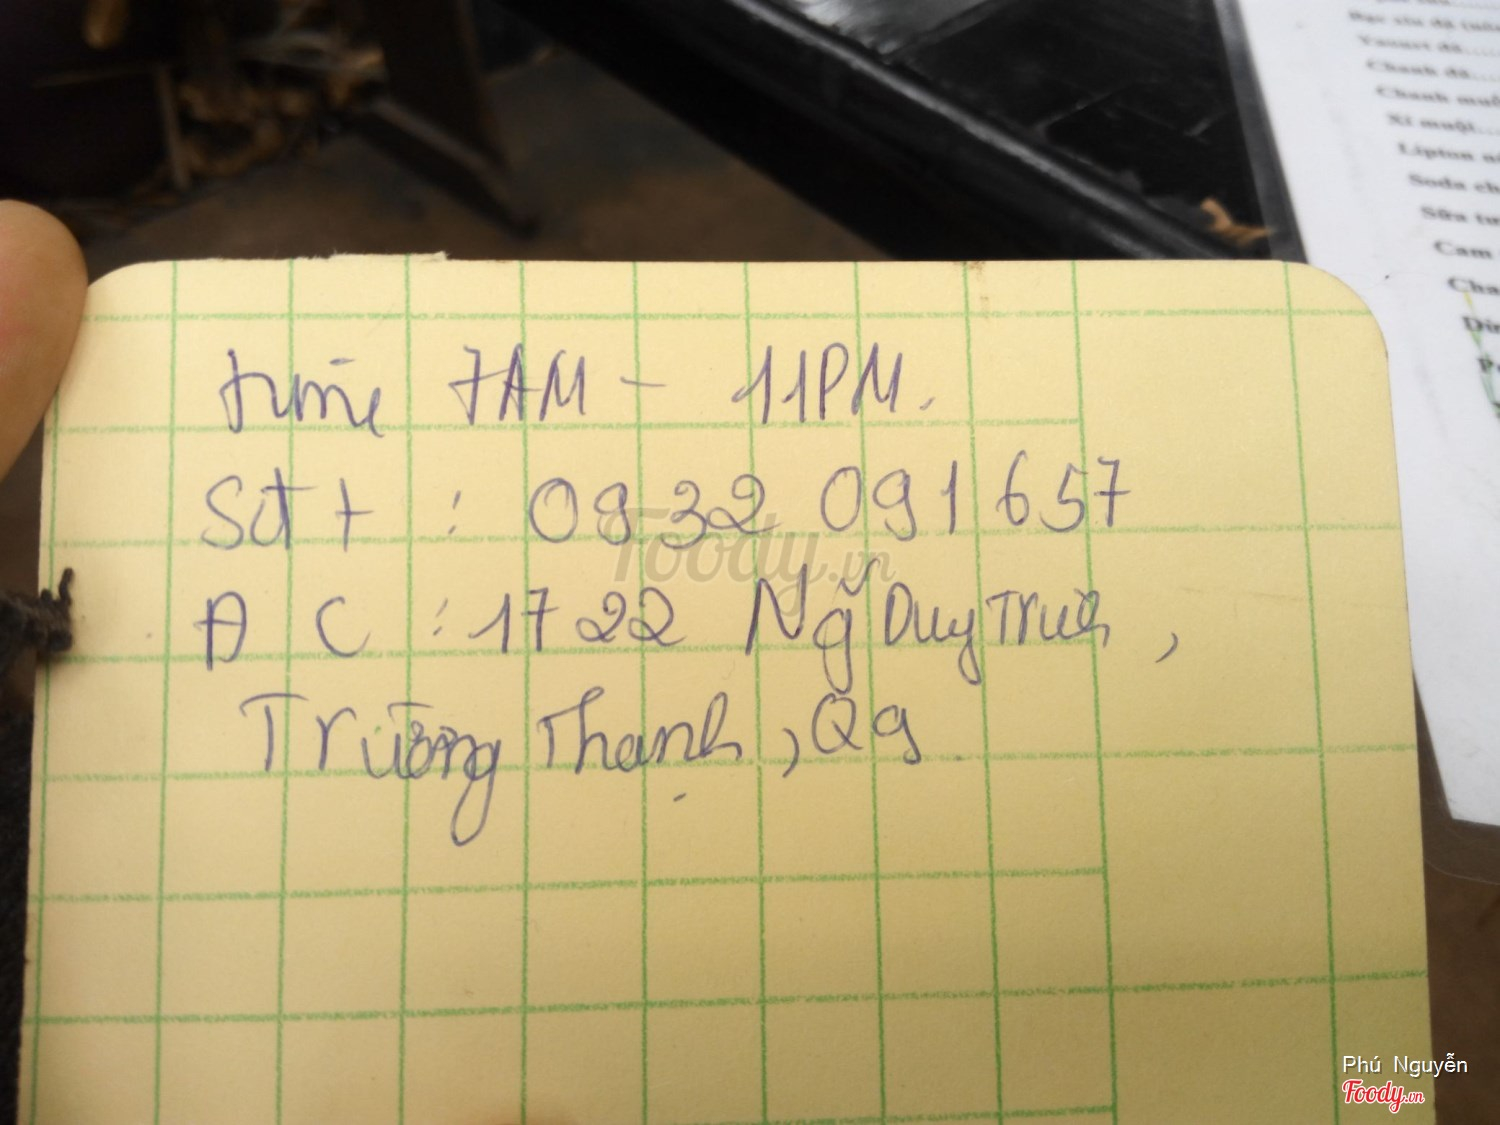 time 7AM - 11PM.
Sđt : 0932 091 657
ĐC : 1722 Ng~ Duy Trinh,
Trường Thạnh, Q9
Foody.vn
Yaourt đá.....
Chanh đá....
Chanh muối
Xí muội....
Lipton
Soda
Sữa
Cam
Phú Nguyễn
Foody.vn